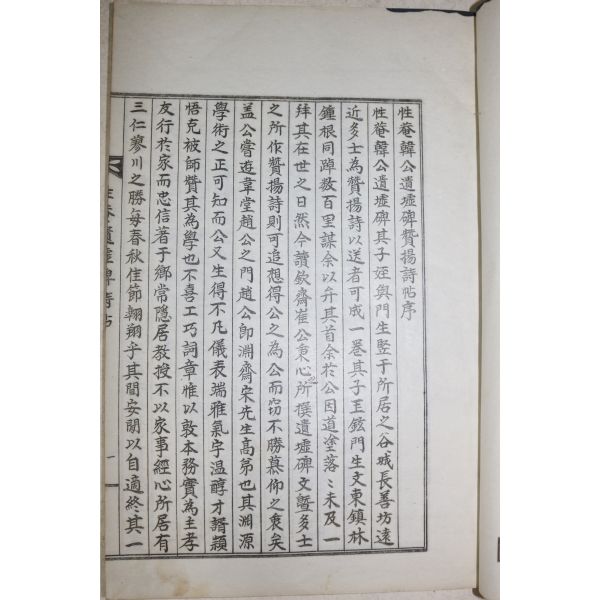 性菴韓公遺墟碑贊揚詩帖序
性菴韓公遺墟碑其子姪與門生竪于所居之谷城長善坊遠
近多士為贊揚詩以送者可成一卷其子玉鉉門生文東鎮林
鍾根同踔數百里謀余以弁其首余於公因道塗落〻未及一
拜其在世之日然今讀欽齋崔公秉心所撰遺墟碑文曁多士
之所作贊揚詩則可追想得公之為公而窃不勝慕仰之衷矣
盖公嘗遊韋堂趙公之門趙公卽淵齋宋先生高弟也其淵源
學術之正可知而公又生得不凡儀表端雅氣宇温醇才諝穎
悟克被師贊其為學也不喜工巧詞章惟以敦本務實為主孝
友行於家而忠信著于鄉常隱居教授不以家事經心所居有
三仁蓼川之勝每春秋佳節翺翔乎其間安閒以自適終其一
遺墟碑詩帖
一